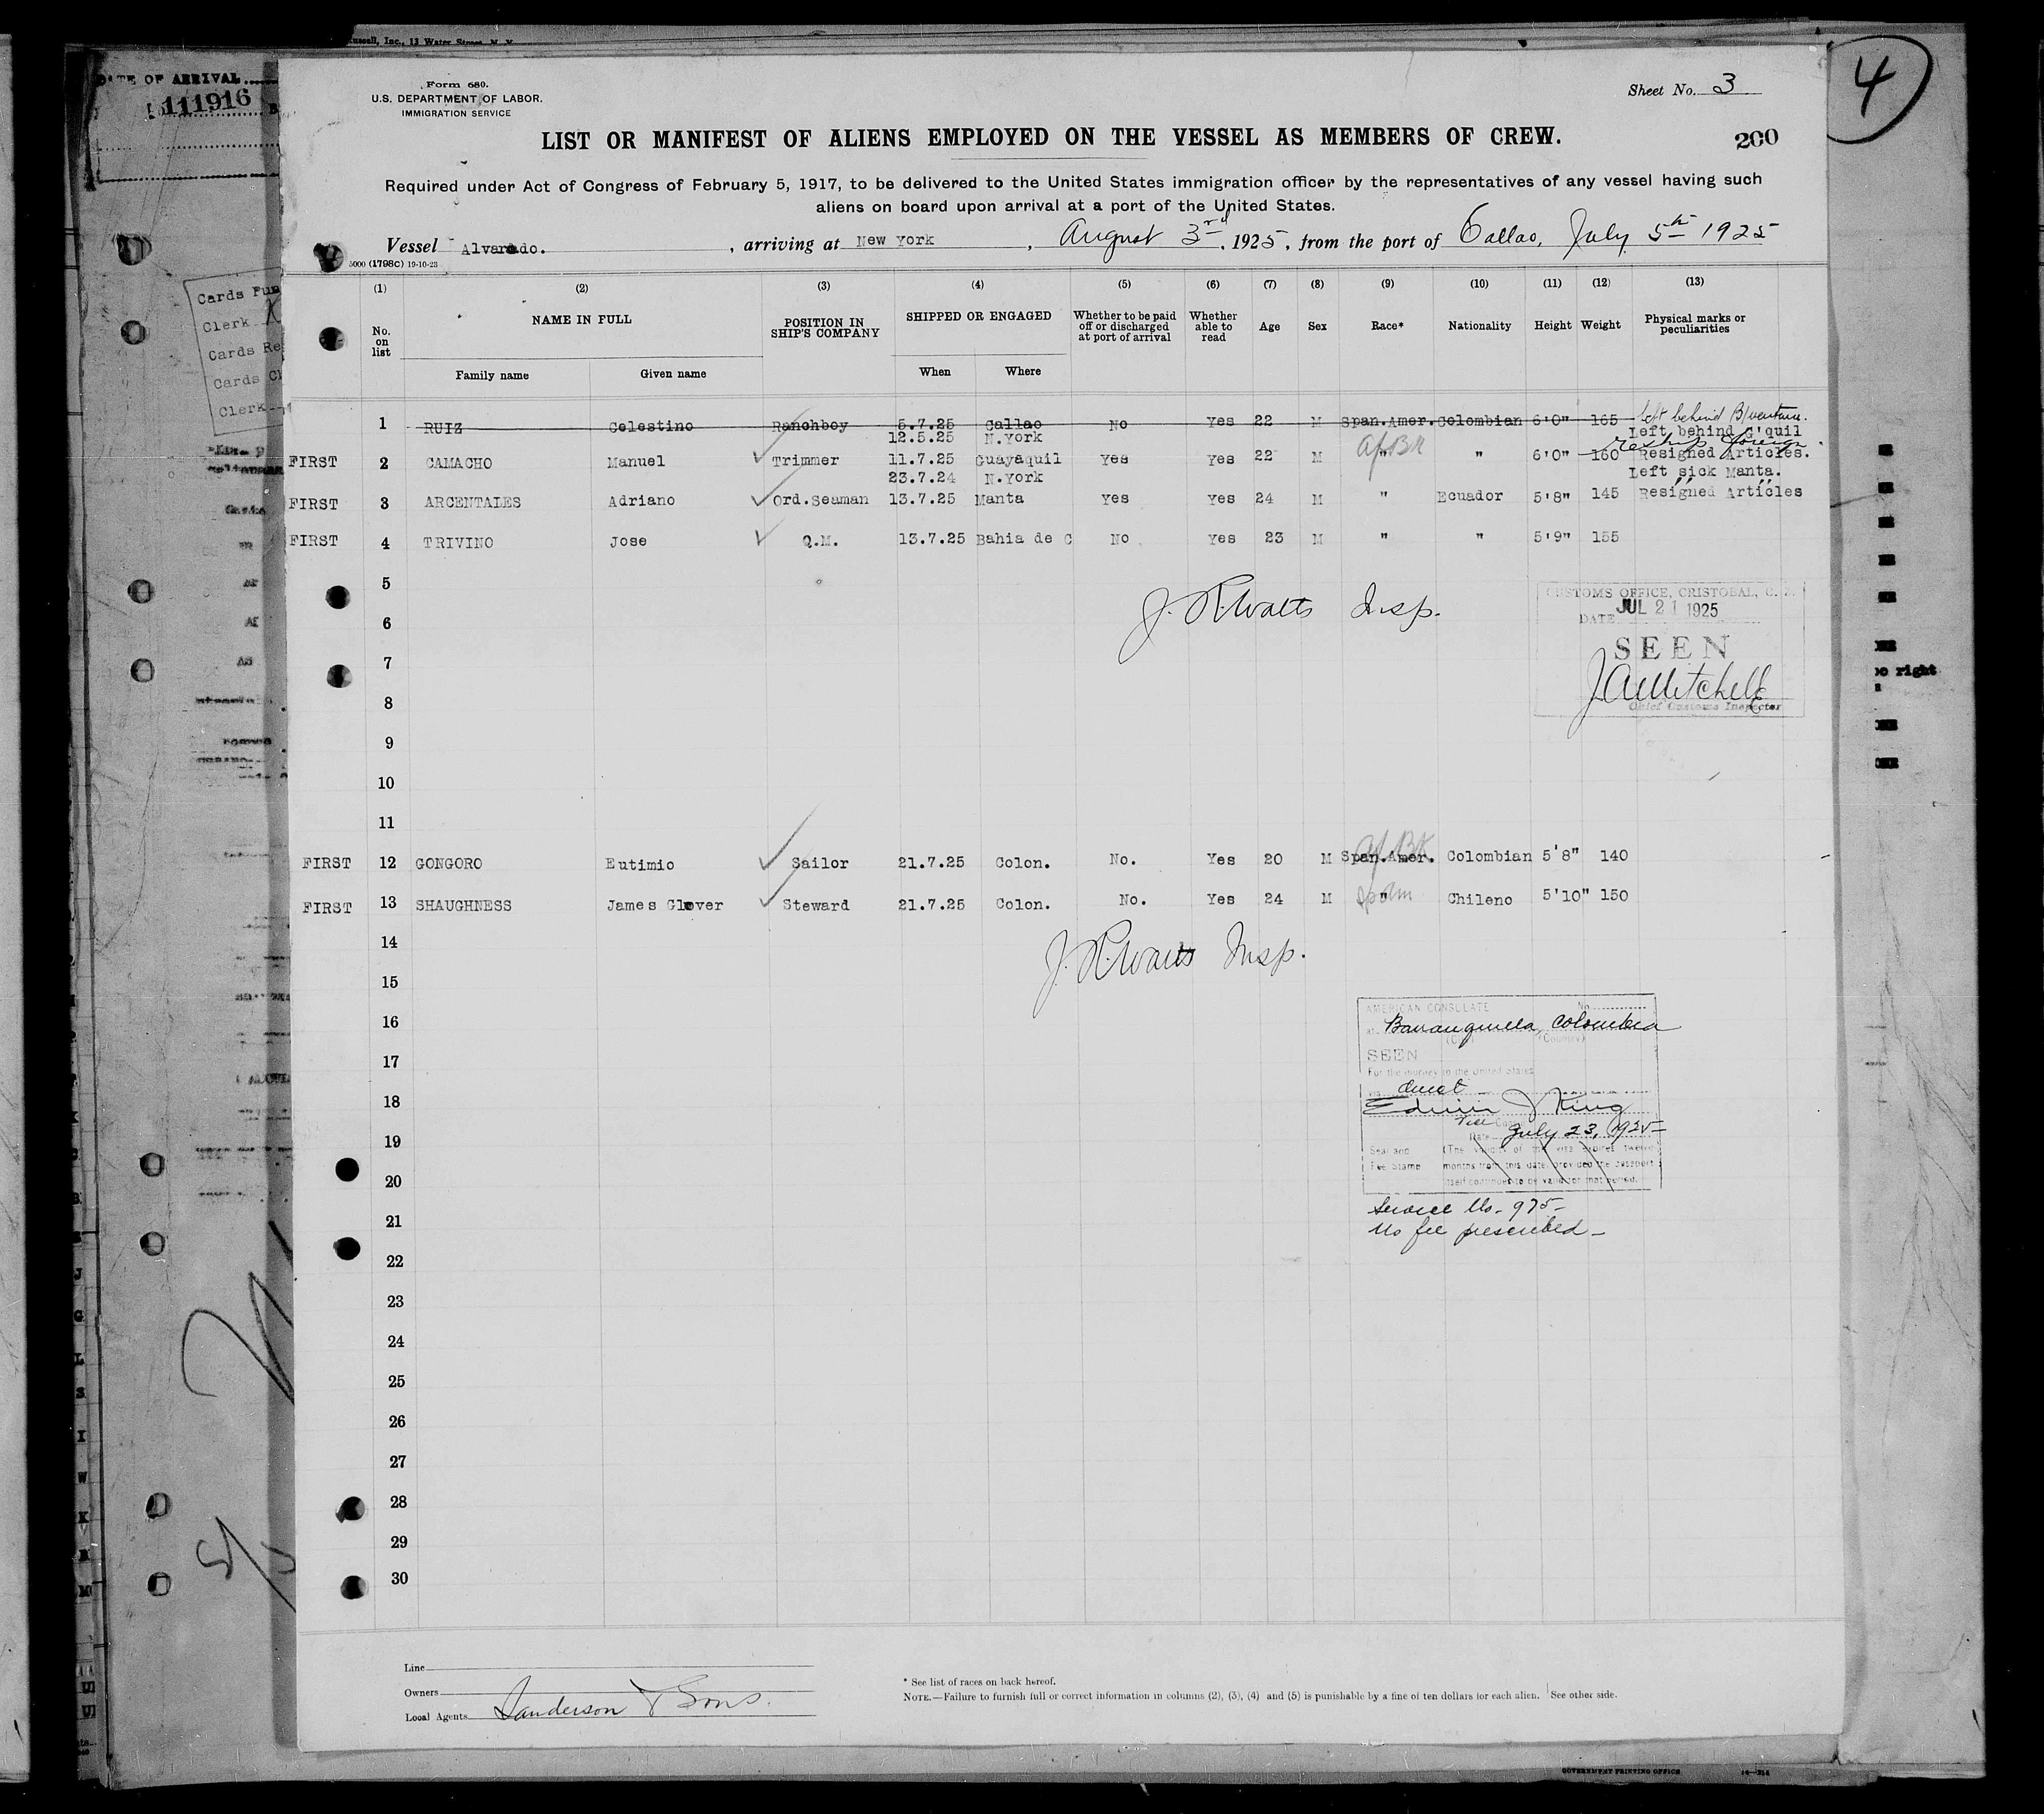 Russell, Inc., 13 Water Street, N. Y.
DATE OF ARRIVAL
111916
4
Form 680.
U.S. DEPARTMENT OF LABOR.
IMMIGRATION SERVICE
Sheet No. 3
LIST OR MANIFEST OF ALIENS EMPLOYED ON THE VESSEL AS MEMBERS OF CREW.
200
Required under Act of Congress of February 5, 1917, to be delivered to the United States immigration officer by the representatives of any vessel having such
aliens on board upon arrival at a port of the United States.
Vessel Alvarado. , arriving at New York , August 3rd, 1925, from the port of Callao, July 5th 1925
5000 (1798C) 19-10-23
Cards
Clerk
Cards
Cards
Clerk
(1) (2) (3) (4) (5) (6) (7) (8) (9) (10) (11) (12) (13)
No. on list NAME IN FULL POSITION IN SHIP'S COMPANY SHIPPED OR ENGAGED Whether to be paid off or discharged at port of arrival Whether able to read Age Sex Race* Nationality Height Weight Physical marks or peculiarities
Family name Given name When Where
1 RUIZ Celestino Ranchboy 5.7.25 Callao No Yes 22 M Span.Amer. Colombian 6'0" 165 Left behind B/ventura.
12.5.25 N.York Left behind G'quil
Reship foreign.
FIRST 2 CAMACHO Manuel Trimmer 11.7.25 Guayaquil Yes Yes 22 M " Af Bk " 6'0" 160 Resigned Articles.
23.7.24 N.York Left sick Manta.
FIRST 3 ARCENTALES Adriano Ord.Seaman 13.7.25 Manta Yes Yes 24 M " Ecuador 5'8" 145 Resigned Articles
FIRST 4 TRIVINO Jose Q.M. 13.7.25 Bahia de C No Yes 23 M " " 5'9" 155
5
6
7
8
9
10
11
J. R. Watts Insp.
CUSTOMS OFFICE, CRISTOBAL, C. Z.
DATE JUL 21 1925
SEEN
J A Mitchell
Chief Customs Inspector
FIRST 12 GONGORO Eutimio Sailor 21.7.25 Colon. No. Yes 20 M Span.Amer. Af Bk Colombian 5'8" 140
FIRST 13 SHAUGHNESS James Glover Steward 21.7.25 Colon. No. Yes 24 M " Sp Am Chileno 5'10" 150
14
15
16
17
18
19
20
21
22
23
24
25
26
27
28
29
30
J. R. Watts Insp.
AMERICAN CONSULATE No.
at Barranquilla, Colombia
(City) (Country)
SEEN
For the journey to the United States
via direct
Edwin J King
Vice Consul
Date July 23, 1925
Seal and (The validity of this visa expires twelve
Fee Stamp months from this date, provided the passport
itself continues to be valid for that period.
Service No. 975-
No fee prescribed-
Line
Owners
Local Agents Sanderson & Sons.
* See list of races on back hereof.
NOTE.—Failure to furnish full or correct information in columns (2), (3), (4) and (5) is punishable by a fine of ten dollars for each alien. See other side.
GOVERNMENT PRINTING OFFICE